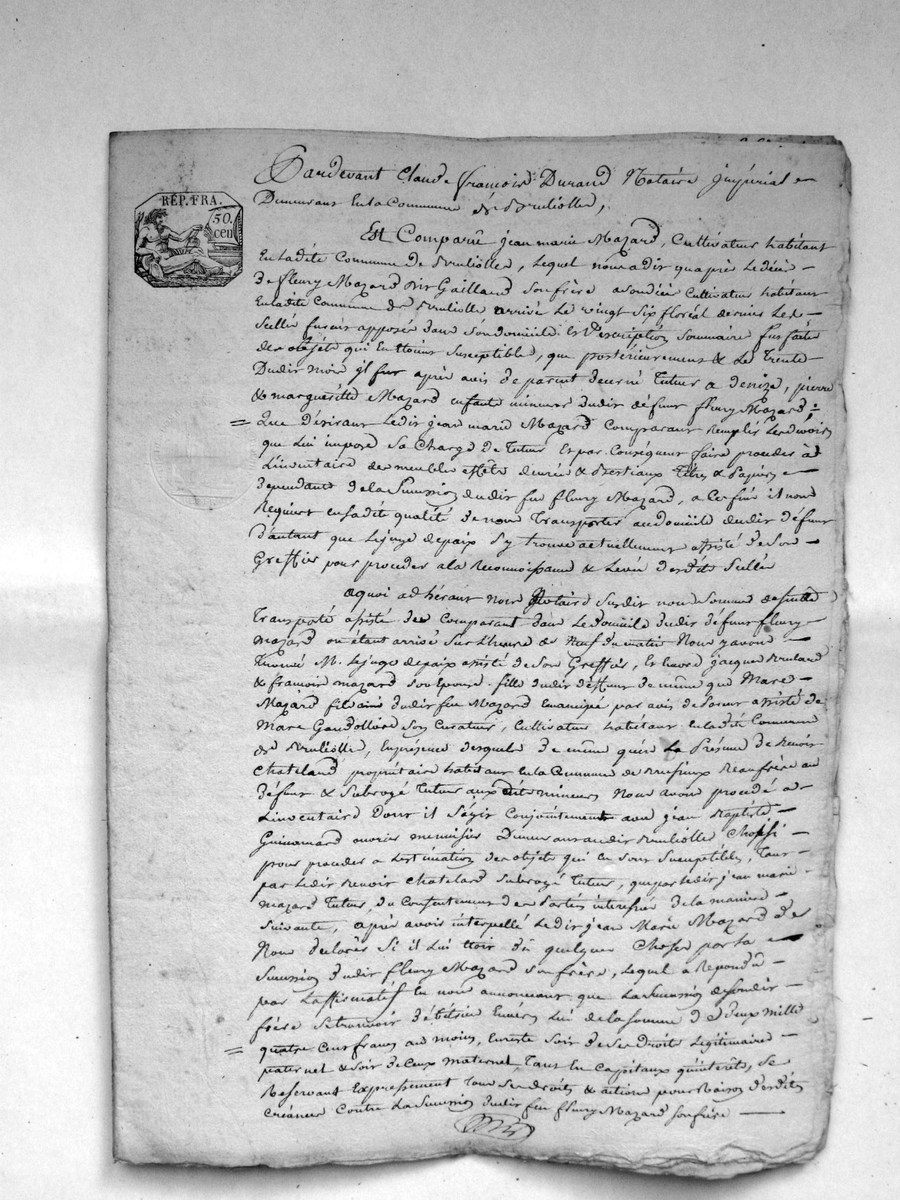 REP. FRA.
50.
cen
Pardevant Claude françois Durand Notaire jmpérial
Demeurant en la Commune de Brulliolle,
Est Comparû jean marie Mazard, Cultivateur habitant
En ladite Commune de Brulliolle, Lequel nous a dit qu'après Le décè
de fleury Mazard dit Gaillard son frère a son décé Cultivateur habitant
En ladite Commune de Brulliolle arrivé Le vingt Six floréal dernier Les
Scellés furent apposés dans son domicile Et Description Sommaire fut faite
des objets qui en étoient Susceptible, que postérieurement & Le Trente
Dudit mois jl fut après avis de parent décerné Tuteur a denize, pierre
& marguéritte Mazard enfants mineurs dudit défunt fleury Mazard,
Que désirant Ledit jean marie Mazard Comparant Remplir Les devoirs
que Lui impose Sa Charge de Tuteur Et par Conséquent faire procéder à
L'inventaire des meubles effets denrées & Bestiaux Titres & Papiers
dépendants de la Succession dudit feu fleury Mazard, a Ces fins il nous
Requiert en Sadite qualité de nous Transporter au domicile dudit défunt
d'autant que Le juge de paix S'y trouve actuellement assisté de Son
Greffier pour procéder a la reconnoissance & Levée desdits Scellés
a quoi adhérant nous Notaire Susdit nous Sommes de suitte
Transporté assisté du Comparant dans Le domicile dudit défunt fleury
mazard ou étant arrivé Sur L'heure de Neuf du matin Nous y avons
Trouvé M. Le juge de paix assisté de Son Greffier, Et encore jacques Brulard
& françoise mazard Son Epouse fille dudit deffunt de même que Marc
Mazard fils ainé dudit feu Mazard Emancipé par avis de parent assisté de
Marc Son Curateur, Cultivateur habitant en ladite Commune
de Brulliolle, En présence desquels de même qu'en La Présence de Benoit
Chatelard propriétaire habitant en la Commune de Beaufrère au
défunt & Subrogé Tuteur aux dits mineurs Nous avons procédé a
L'inventaire dont il S'agit Conjointement avec jean Baptiste
ouvrier menuisier Demeurant audit Brulliolle Choisi
pour procéder a L'estimation des objets qui en Sont Susceptibles, Tant
par Ledit Benoit Chatelard Subrogé Tuteur, que par Ledit jean marie
mazard Tuteur, du Consentement des Parties intéressées de la manière
Suivante, après avoir interpellé Ledit jean Marie Mazard de
Nous déclarer Si il Lui étoit dû quelque Chose par la
Succession dudit fleury Mazard Son frère, Lequel a Répondu
par L'affirmatif En nous annonceant que La Succession de sondit
frère Se trouvoit débitrice Envers Lui de la Somme de deux mille
quatre Cent francs au moins, En reste Soit de Ses Droits Legitimaires
paternel & Soit de Ceux maternel, Tant En Capitaux qu'interêts, Se
Reservant Expressément Tous Ses droits & actions pour Raison desdites
Créances Contre La Succession dudit feu fleury Mazard Son frère